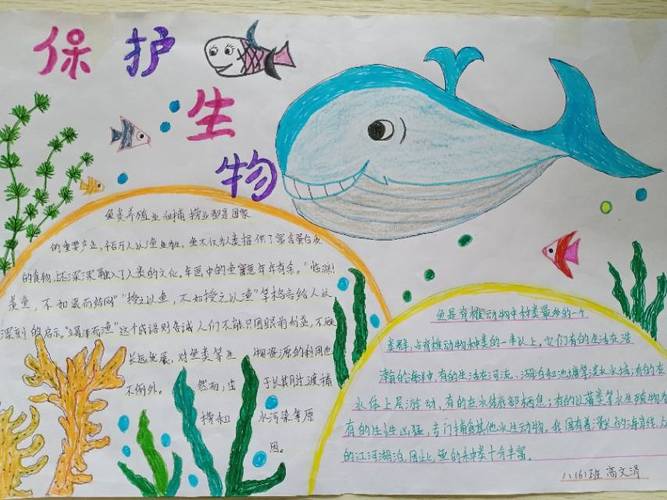 保护
生
物
鱼类养殖业和捕捞业都是国家
的重要产业,千百万人以渔业为生。鱼不仅为人类提供了富含蛋白质
的食物,还深深融入了人类的文化,年画中的鱼寓意年年有余。"临渊
羡鱼,不如退而结网""授之以鱼,不如授之以渔"等格言给人以
深刻的启示。"竭泽而渔"这个成语则告诫人们不能只图眼前利益,不顾
长远发展,对鱼类等生物资源的利用也
不例外。然而,由于长期过度捕
捞和水污染等原
因。
鱼是脊椎动物中种类最多的一个
类群,占脊椎动物种类的一半以上,它们有的生活在浩
瀚的海洋中,有的生活在河流、湖泊和池塘等淡水水域;有的在
水体上层游动,有的在水体底部栖息;有的以藻类等水生植物为
有的生性凶猛,专门捕食其他水生动物。我国有着漫长的海岸线,
的江河湖泊,因此,鱼的种类十分丰富。
八(6)班 高文清